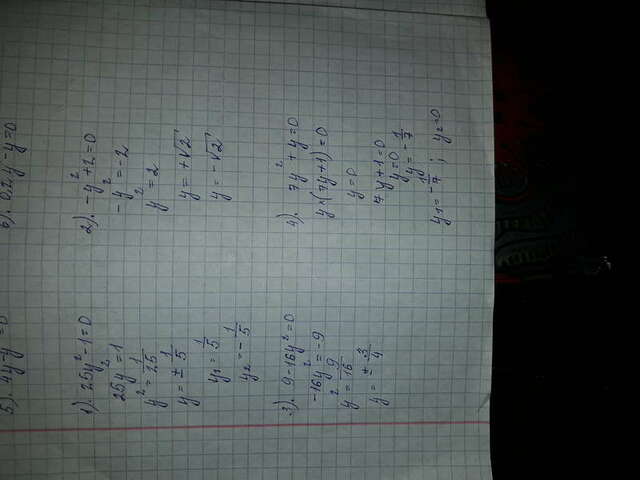 5). 4y²-y=0
6). 0,2y²-y=0
1). 25y²-1=0
25y²=1
y²=1/25
y=±1/5
y₁=1/5
y₂=-1/5
2). -y²+2=0
-y²=-2
y²=2
y=+√2
y=-√2
3). 9-16y²=0
-16y²=-9
y²=9/16
y=±3/4
4). 7y²+y=0
y·(7y+1)=0
y=0
7y+1=0
y=0
y=-1/7
y₁=-1/7; y₂=0